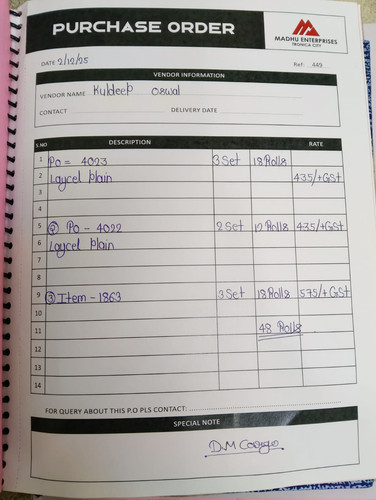 PURCHASE ORDER
MADHU ENTERPRISES
TRONICA CITY
DATE 2/12/25
Ref: 449
VENDOR INFORMATION
VENDOR NAME Kuldeep Oswal
CONTACT DELIVERY DATE
S.NO DESCRIPTION RATE
1 Po = 4023 3 Set 18 Rolls
2 Laycel Plain 435/+GSt
3
4
5 ② Po - 4022 2 Set 12 Rolls 435/+GSt
6 Laycel Plain
7
8
9 ③ Item - 1863 3 Set 18 Rolls 575/+GSt
10
11 48 Rolls
12
13
14
FOR QUERY ABOUT THIS P.O PLS CONTACT:
SPECIAL NOTE
D.M Cargo